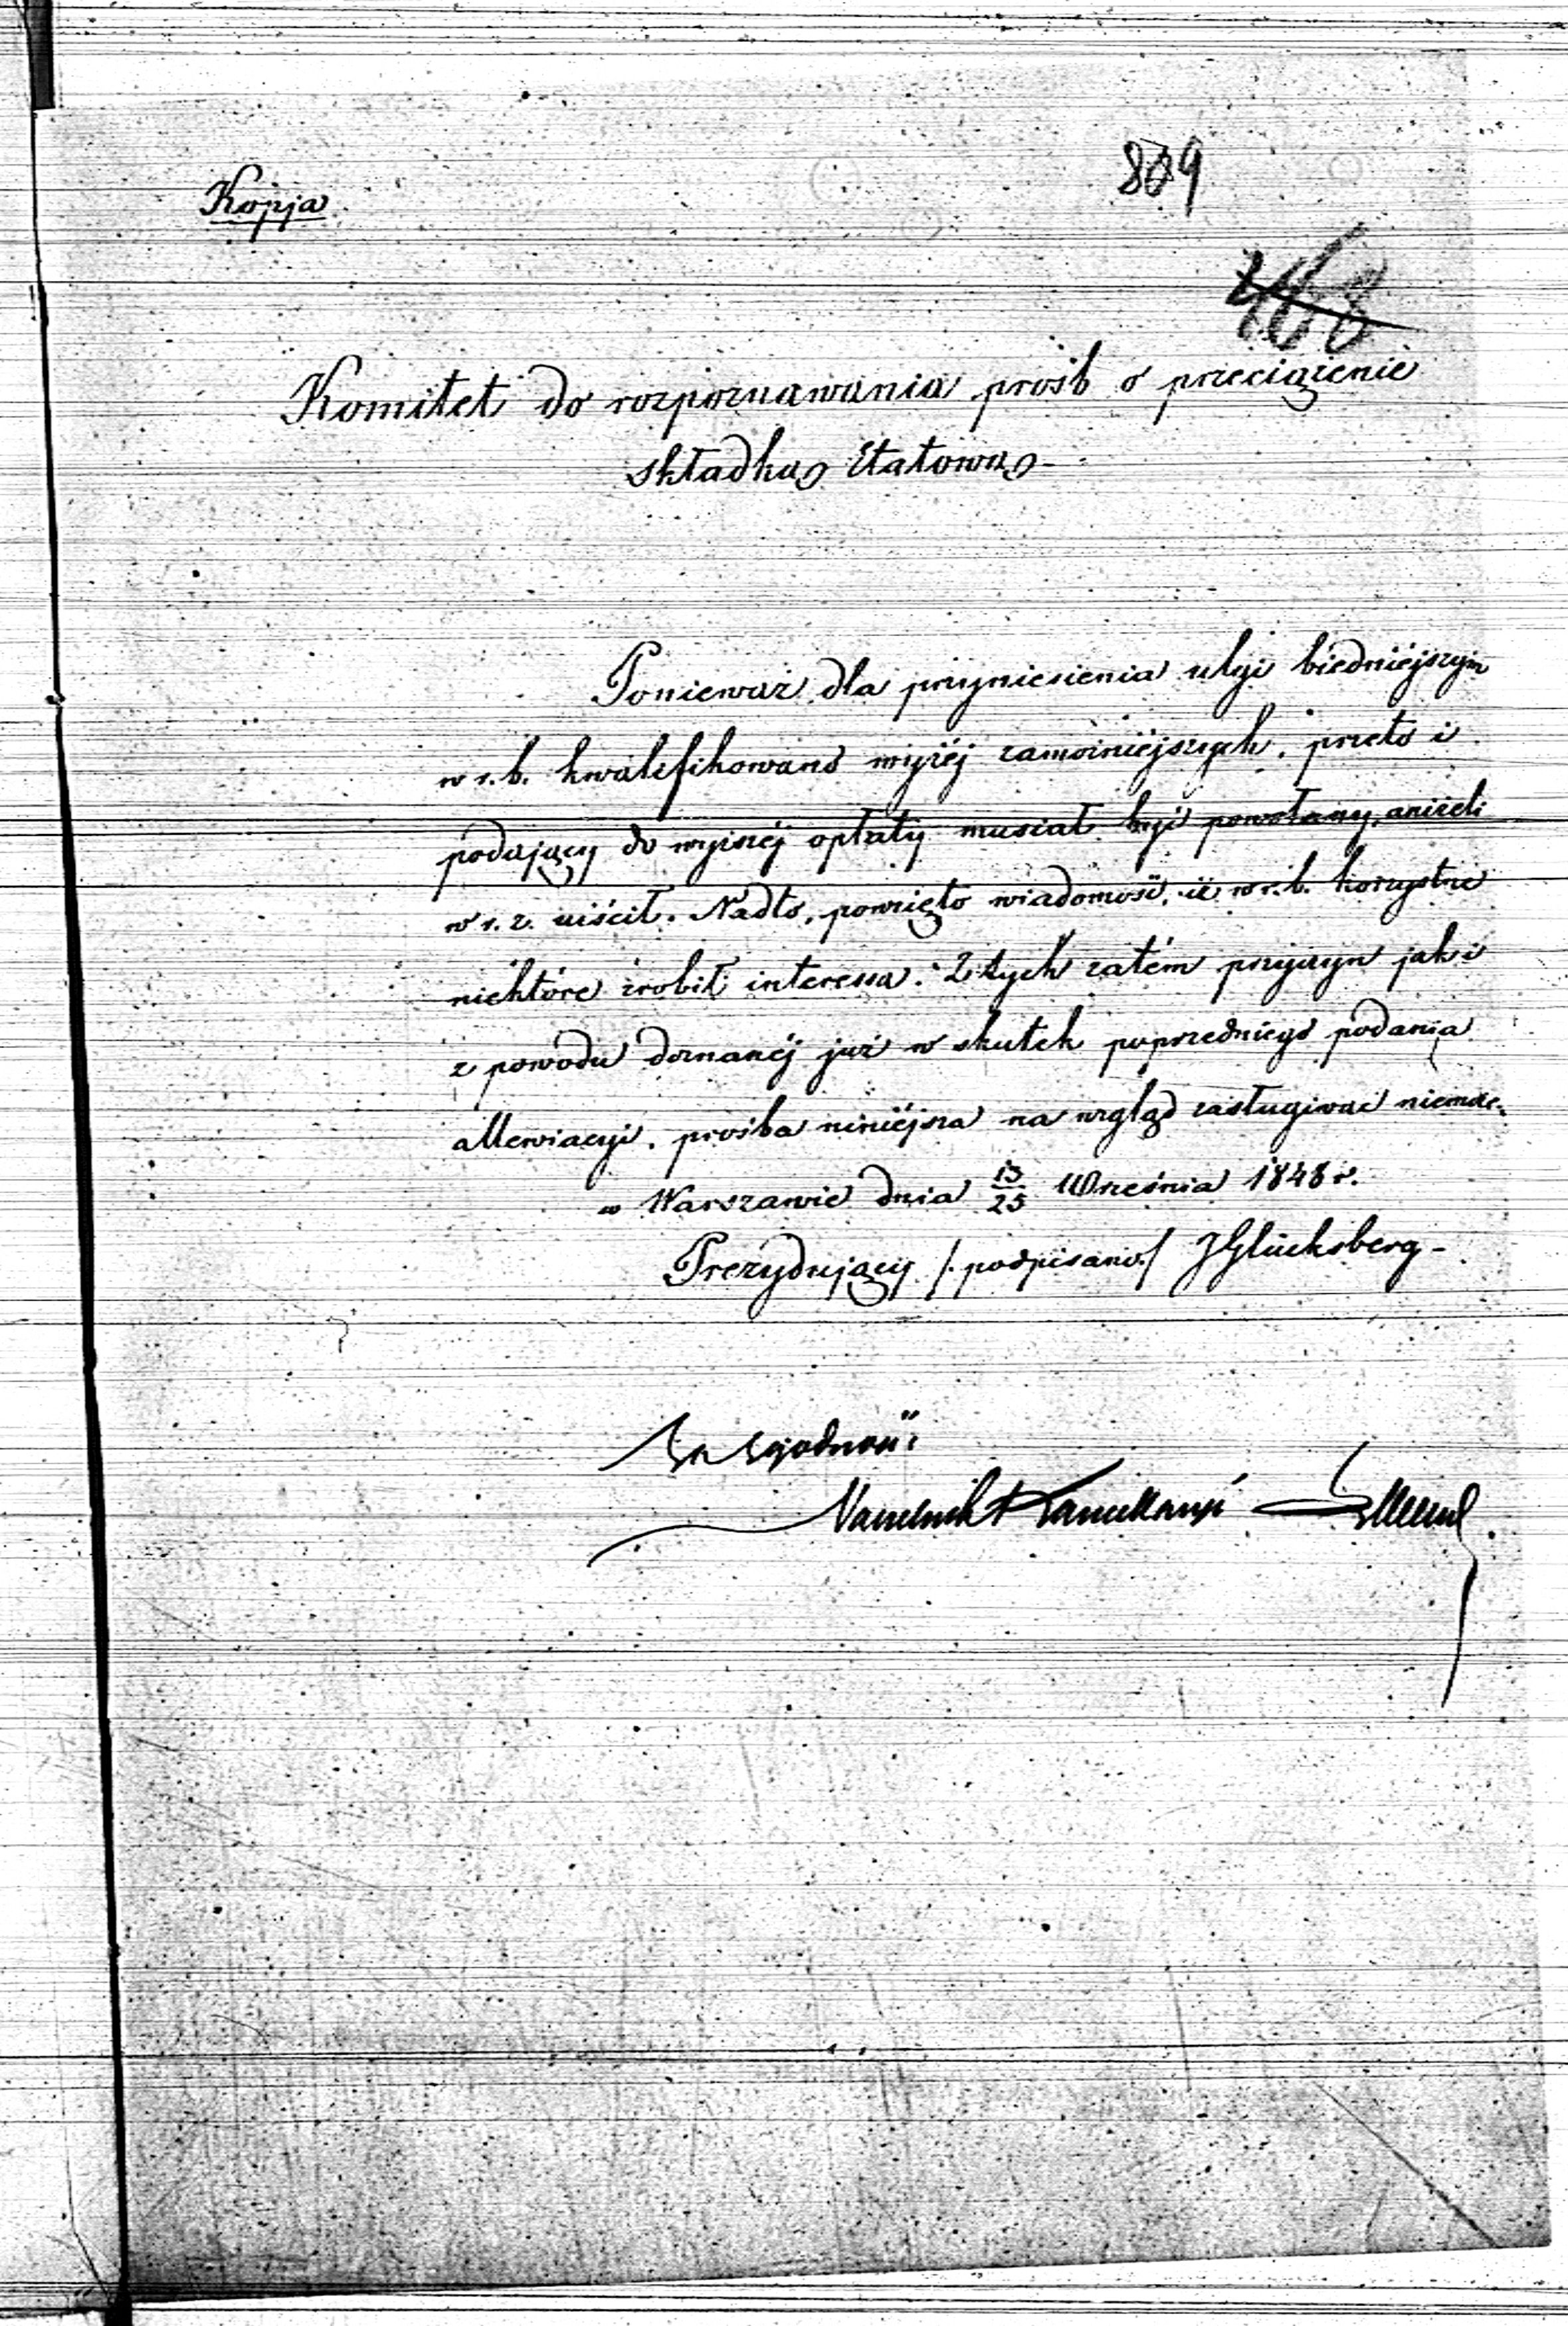 Kopja
809
468
Komitet do rozpoznawania prośb o przeciążenie
składką Etatową
Ponieważ dla przyniesienia ulgi biedniéjszym
w r. b. kwalifikowano wyżéj zamożniéjszych, przeto i
podający do wyższéj opłaty musiał być powołany, aniżeli
w r. z. uiścił. Nadto, powzięto wiadomość, iż w r. b. korzystne
niektóre zrobił interessa. Z tych zatém przyczyn jak i
z powodu doznanéj już w skutek poprzedniego podania
allewiacyi, prośba niniéjsza na wzgląd zasługiwać niemoże.
w Warszawie dnia 13/25 Września 1848 r.
Prezydujący /podpisano/ J Glücksberg -
Za zgodność
Naczelnik Kancellaryi